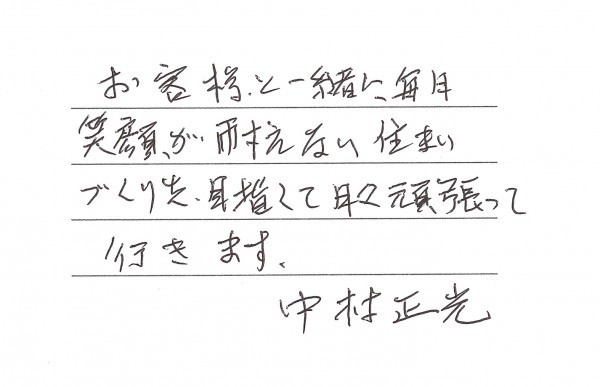 お客様と一緒に、毎日
笑顔が耐えない住まい
づくりを目指して日々頑張って
行きます。
中村正光